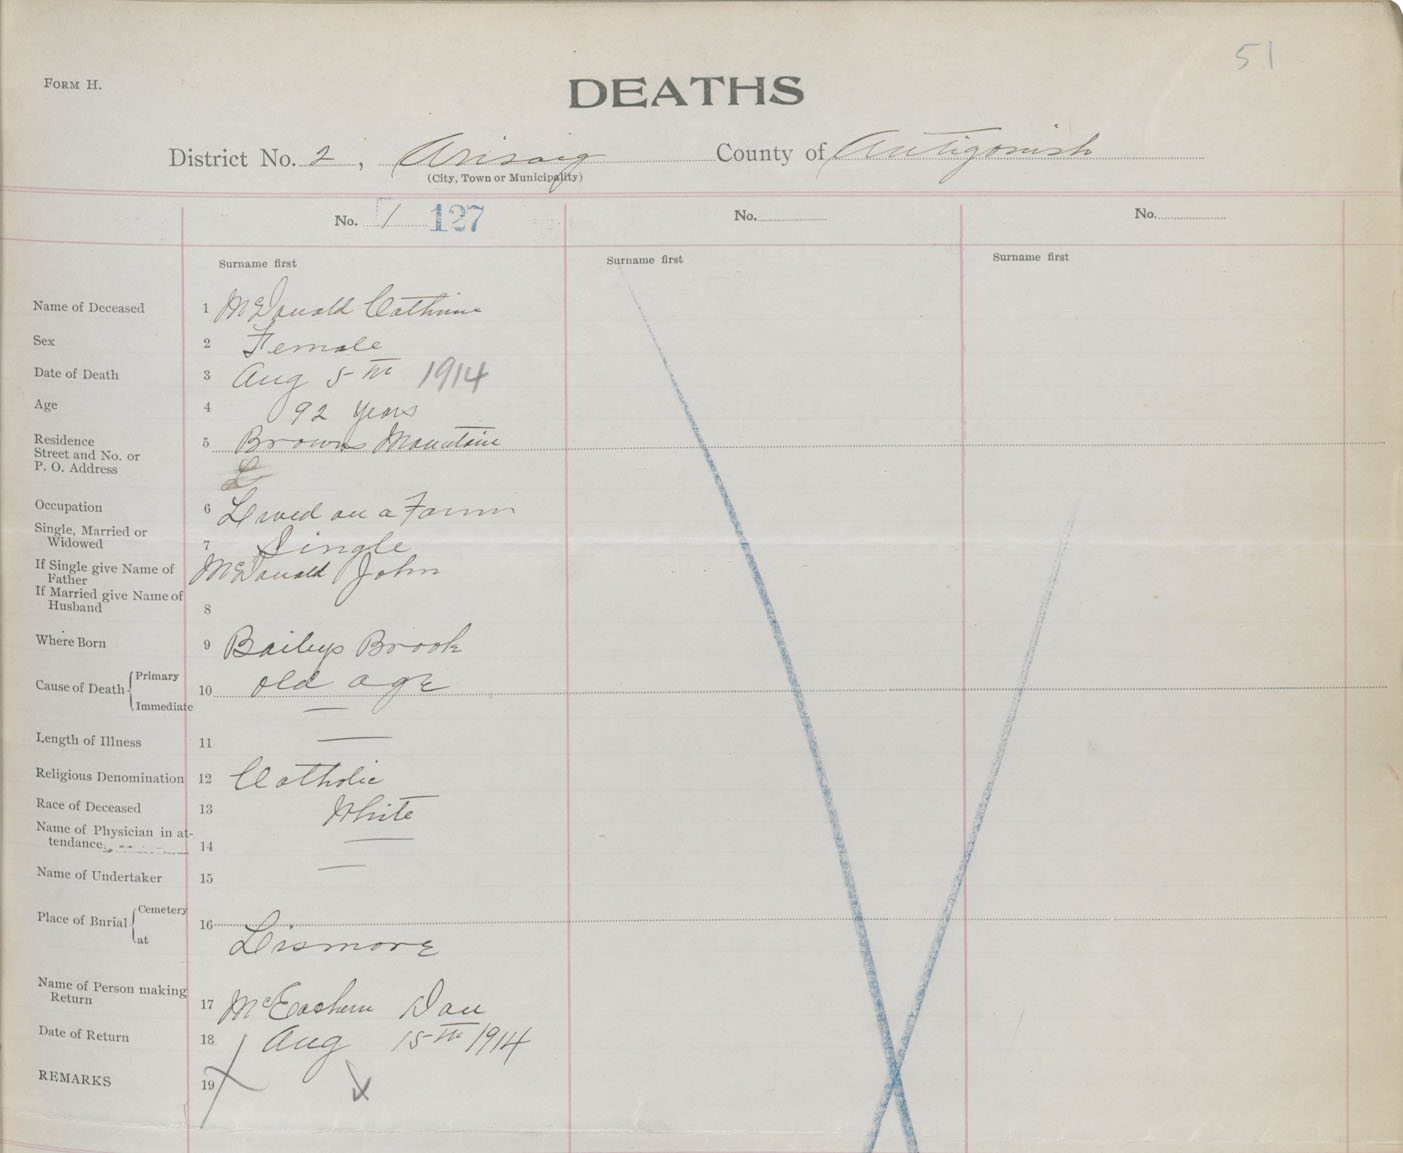 51
FORM H.
DEATHS
District No. 2, Arisaig County of Antigonish
(City, Town or Municipality)
No. 1 127 No. No.
Surname first Surname first Surname first
Name of Deceased 1 McDonald Cathrine
Sex 2 Female
Date of Death 3 Aug 5th 1914
Age 4 92 years
Residence 5 Browns Mountain
Street and No. or
P. O. Address
Occupation 6 Lived on a Farm
Single, Married or
Widowed 7 Single
If Single give Name of McDonald John
Father
If Married give Name of
Husband 8
Where Born 9 Baileys Brook
Cause of Death Primary 10 old age
Immediate
Length of Illness 11
Religious Denomination 12 Catholic
Race of Deceased 13 White
Name of Physician in at-
tendance 14
Name of Undertaker 15
Place of Burial Cemetery 16
at Lismore
Name of Person making
Return 17 McEachern Dan
Date of Return 18 Aug 15th 1914
REMARKS 19